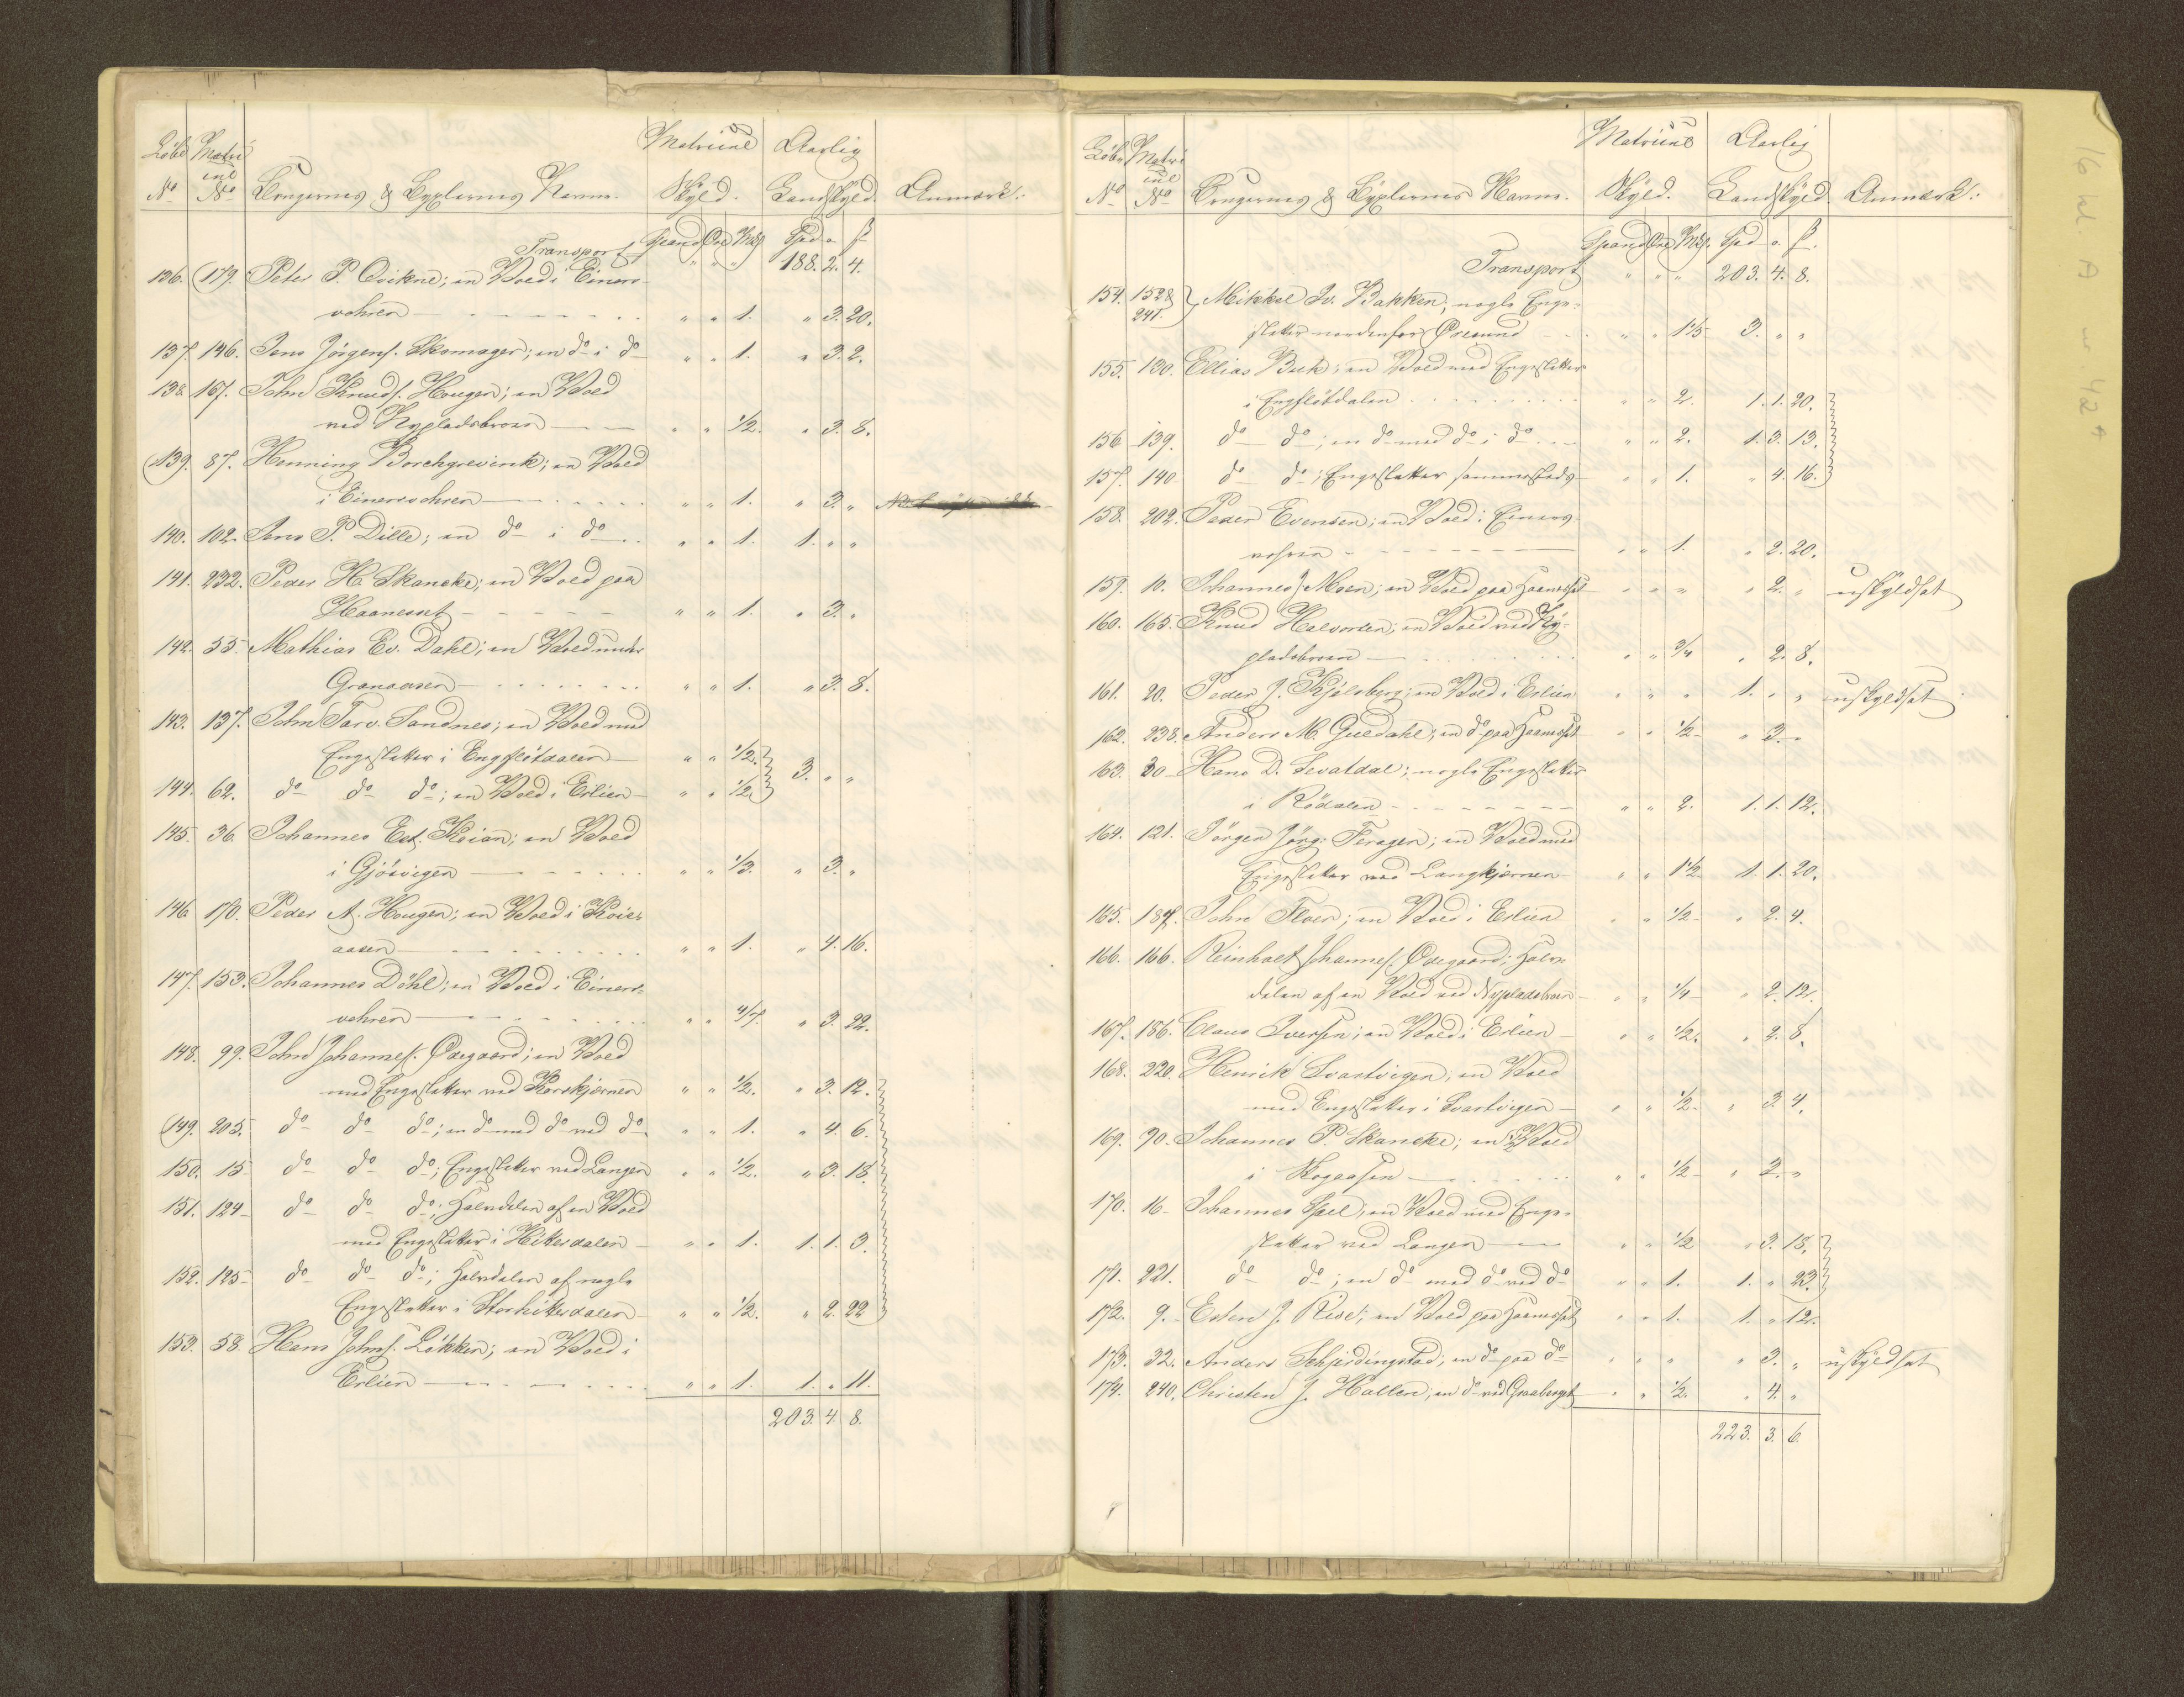 Löbe Matri Matricul Aarlig
cul
No No Brugernes & Byxlernes Navne. Skyld. Landskyld. Anmærk:
Spand Øre Mrk Spd o. ß
Transport " " " 188. 2. 4.
136. 179. Peter P. Qvikne; en Vold i Einers-
vohren " " 1. " 3. 20.
137. 146. Jens Jörgens. Skomager; en do i do " " 1. " 3. 2.
138. 167. Johan Knuds. Hougen; en Vold
ved Nypladsbroen " " 1/2. " 3. 8.
139. 87. Henning Borchgrevink; en Vold
i Einersvohren " " 1. " 3. "
140. 102. Jens P. Dille; en do i do " " 1. 1. " "
141. 232. Peder H. Skancke; en Vold paa
Haanesset " " 1. " 3. "
142. 55. Mathias Ev. Dahl; en Vold under
Granaasen " " 1. " 3. 8.
143. 137. John Tarv. Sandnes; en Vold med
Engesletter i Engflötdalen " " 1/2.
144. 62. do do do; en Vold i Erlien " " 1/2. 3. " "
145. 36. Johannes Est. Koian; en Vold
i Gjösvigen " " 1/3. " 3. "
146. 170. Peder A. Hougen; en Vold i Koie-
aasen " " 1. " 4. 16.
147. 153. Johannes Döhl; en Vold i Einers-
vohren " " 4/7. " 3. 22.
148. 99. John Johannes. Ødegaard; en Vold
med Engesletter ved Korskjernen " " 1/2. " 3. 12.
149. 205. do do do; en do med do ved do " " 1. " 4. 6.
150. 15 do do do; Engesletter ved Langen " " 1/2. " 3. 18.
151. 124 do do do; Halvdelen af en Vold
med Engesletter i Hitterdalen " " 1. 1. 1. 3.
152. 125 do do do; Halvdelen af nogle
Engesletter i Storhitterdalen " " 1/2. " 2. 22
153. 58. Hans Johns. Lökken; en Vold i
Erlien " " 1. 1. " 11.
203. 4. 8.
Löbe Matri Matricul Aarlig
cul
No No Brugernes & Byxlernes Navne. Skyld. Landskyld. Anmærk:
Spand Øre Mrk. Spd o. ß.
Transport " " " 203. 4. 8.
154. 152 & Mikkel Iv. Bakken; nogle Enge-
241. sletter nordenfor Øresund " " 1 1/5 3. " "
155. 130. Ellias Buk; en Vold med Engesletter
i Engflötdalen " " 2. 1. 1. 20.
156 139. do do; en do med do i do " " 2. 1. 3. 13.
157. 140 do do; Engesletter sammesteds " " 1. " 4. 16.
158. 202. Peder Evensen; en Vold i Einers-
vohren " " 1. " 2. 20.
159. 10. Johannes J. Moen; en Vold paa Haanesset " " " " 2. " uskyldsat
160. 165. Knud Halvorsen; en Vold ved Ny-
pladsbroen " " 3/4 " 2. 8.
161. 20. Peder J. Kjölsberg; en Vold i Erlien " " " 1. " " uskyldsat
162. 238. Anders M. Guldahl; en do paa Haanesset " " 1/2 " 3. "
163. 30 Hans D. Sevatdal; nogle Engesletter
i Rödalen " " 2. 1. 1. 12.
164. 121. Jörgen Jörg. Feragen; en Vold med
Engesletter ved Langkjernen " " 1 1/2 1. 1. 20.
165. 187. John Floer; en Vold i Erlien " " 1/2 " 2. 4.
166. 166. Reinholt Johannes. Ødegaard; Halv-
delen af en Vold ved Nypladsbroen " " 1/4 " 2. 12.
167. 186. Claus Iversen; en Vold i Erlien " " 1/2. " 2. 8.
168. 220. Henrik Svartvigen; en Vold
med Engesletter i Svartvigen " " 1/2 " 3. 4.
169. 90. Johannes P. Skancke; en Vold
i Skogaasen " " 1/2 " 2. "
170. 16 Johannes Spel; en Vold med Enge-
sletter ved Langen " " 1/2 " 3. 18.
171. 221. do do; en do med do ved do " " 1. 1. " 23.
172. 9. Esten J. Rise; en Vold paa Haanesset " " 1. 1. " 12.
173. 32. Anders Schjerdingstad; en do paa do " " " " 3. " uskyldsat
174. 240. Christen J. Hallen; en do ved Graaberget " " 1/2. " 4. "
223. 3. 6.
16 kl. A nr. 42 A